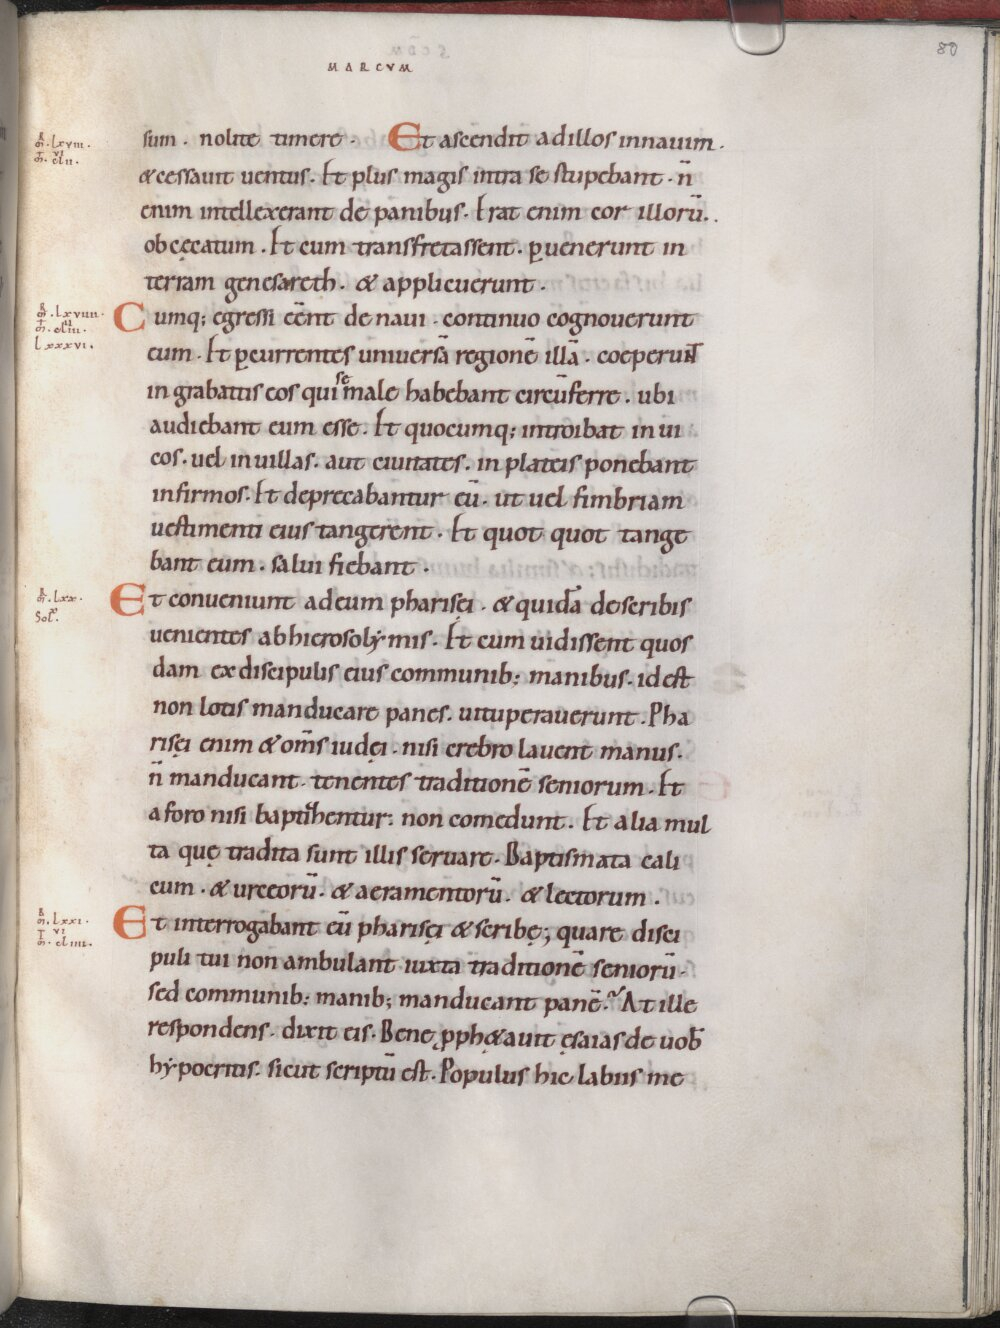 MARCVM
80
sum . nolite timere . Et ascendit ad illos in nauim .
& cessauit uentus . Et plus magis intra se stupebant . n̄
enim intellexerant de panibus . Erat enim cor illorū . .
obcęcatum . Et cum transfretassent . ꝑuenerunt in
terram genesareth . & applicuerunt .
Cumq; egressi eēnt de naui . continuo cognouerunt
eum . Et ꝑcurrentes uniuersā regionē illā . coeperunt
in grabatis eos qui se male habebant circūferre . ubi
audiebant eum esse . Et quocumq; introibat in ui
cos . uel in uillas . aut ciuitates . in plateis ponebant
infirmos . Et deprecabantur eū . ut uel fimbriam
uestimenti eius tangerent . Et quot quot tange
bant eum . salui fiebant .
Et conueniunt ad eum pharisęi . & quidā de scribis
uenientes ab hierosolymis . Et cum uidissent quos
dam ex discipulis eius communib; manibus . id est
non lotis manducare panes . uituperauerunt . Pha
risęi enim & om̄s iudęi . nisi crebro lauent manus .
n̄ manducant . tenentes traditionē seniorum . Et
a foro nisi baptizentur : non comedunt . Et alia mul
ta quę tradita sunt illis seruare . Baptismata cali
cum . & urceorū . & aeramentorū . & lectorum .
Et interrogabant eū pharisęi & scribę ; quare disci
puli tui non ambulant iuxta traditionē seniorū .
sed communib; manib; manducant panē . At ille
respondens . dixit eis . Bene ꝓph&auit ęsaias de uob̄
hypocritis . sicut scriptū est . Populus hic labiis me
lxviii .
lxviiii .
lxxxvi .
lxx .
Sol̄ .
lxxi .